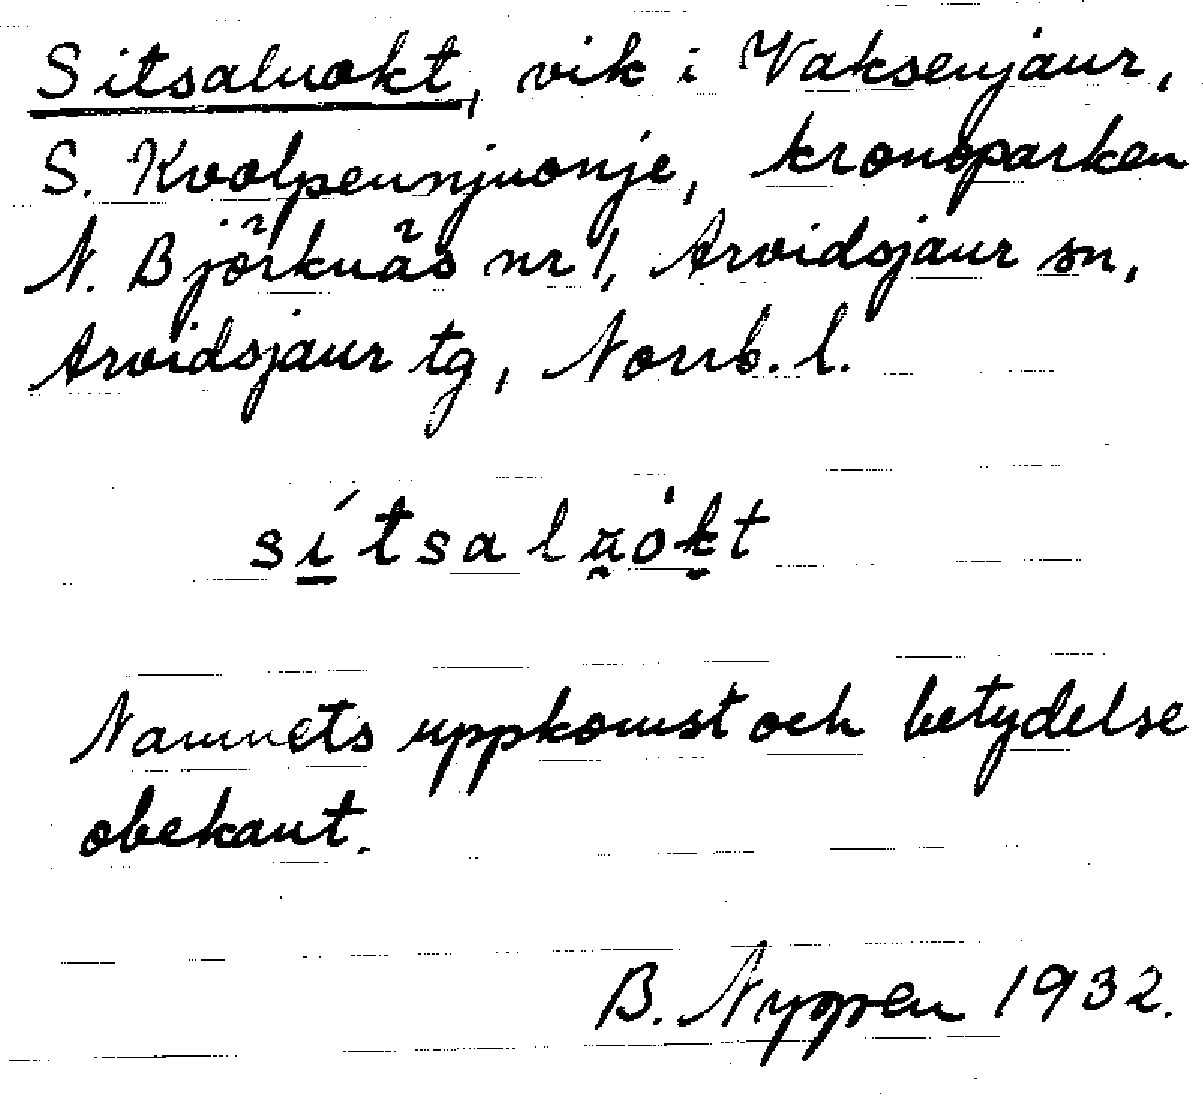 Sitsaluokt, vik i Vaksenjaur,
S. Kvolpennjuonje, kronoparken
N. Björknäs nr 1, Arvidsjaur sn,
Arvidsjaur tg, Norrb. l.
sí̱tsalu̯ȯk̬t
Namnets uppkomst och betydelse
obekant.
B. Nygren 1932.